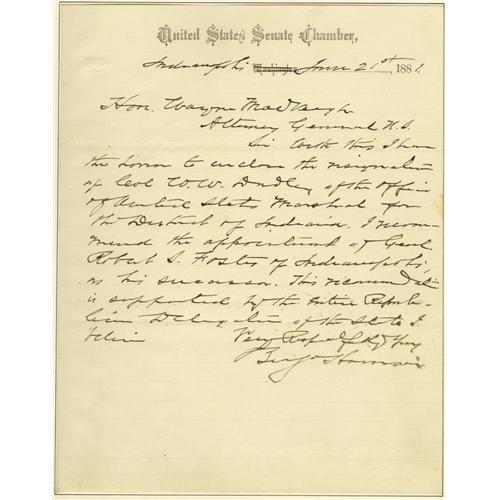 United States Senate Chamber,
Indianapolis Washington June 21st, 1881.
Hon. Wayne MacVeagh
Attorney General U.S.
Sir With this I have
the honor to enclose the resignation
of Col W. W. Dudley of the office
of United States Marshal for
the District of Indiana. I recom-
mend the appointment of Genl
Robert S. Foster of Indianapolis,
as his successor. This recommendation
is supported by the entire Repub-
lican Delegation of the State I
believe Very Respectfully Yours
Benj Harrison